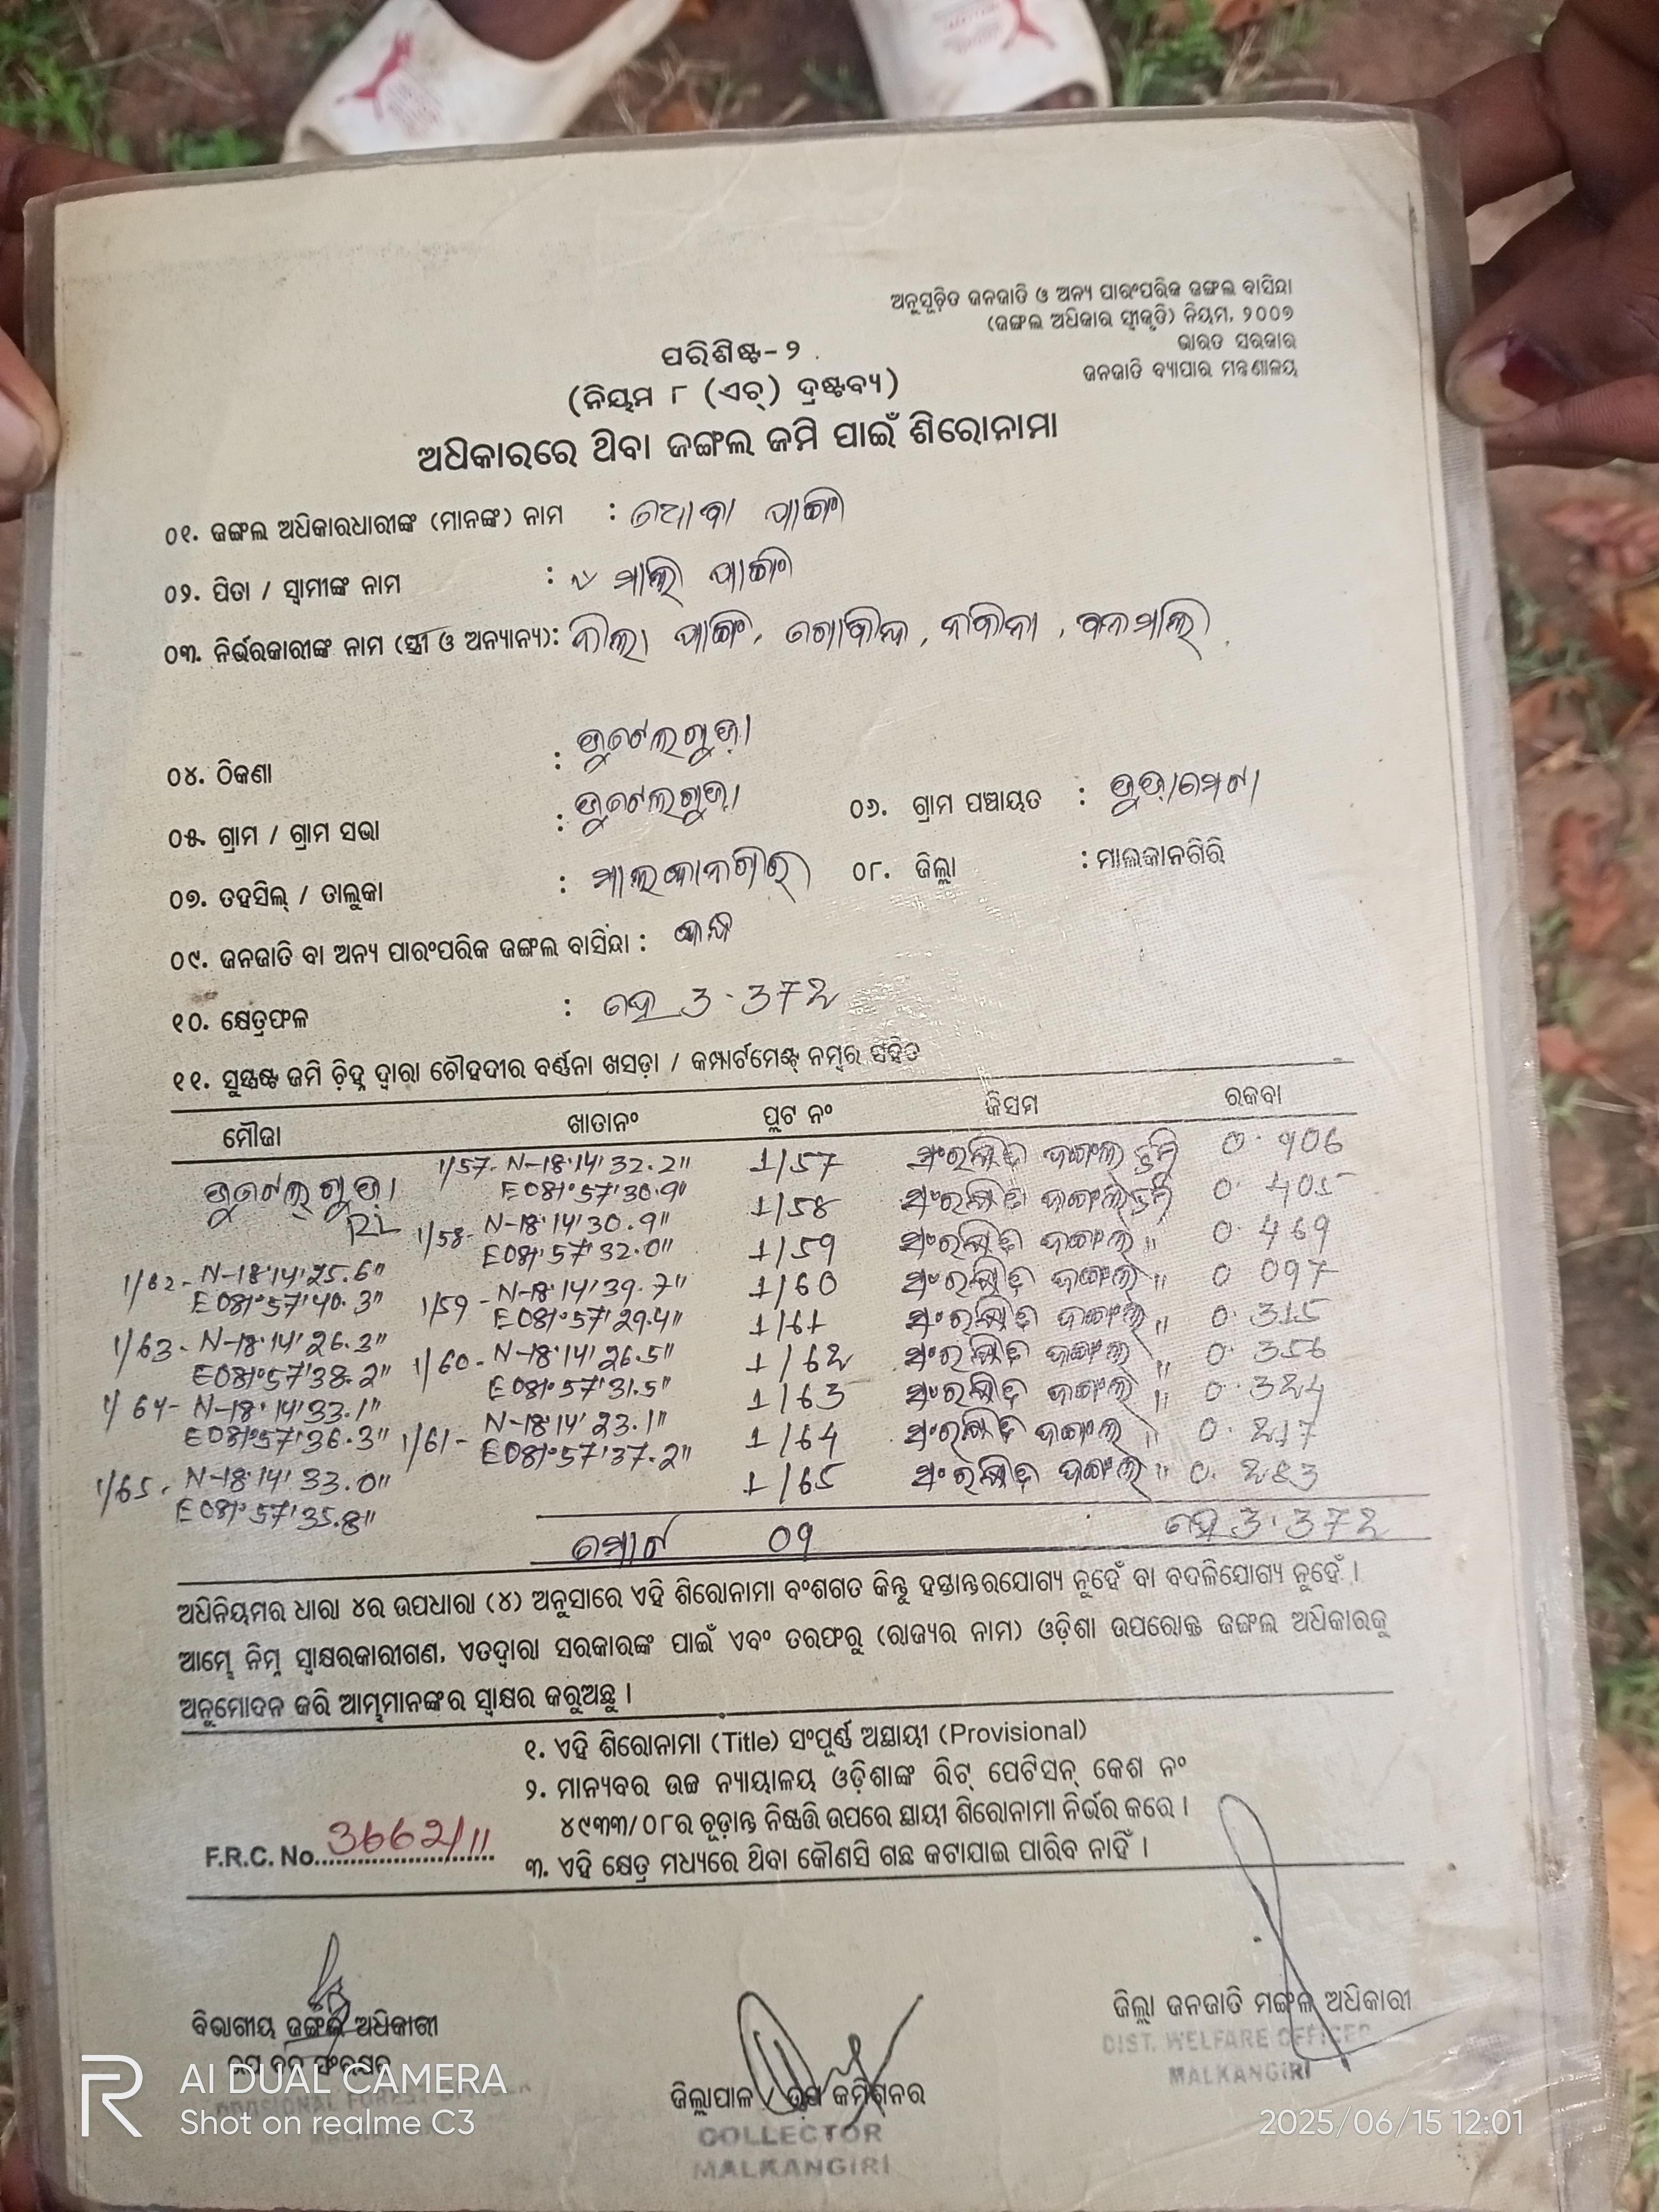 ଅନୁସୂଚିତ ଜନଜାତି ଓ ଅନ୍ୟ ପାରଂପରିକ ଜଙ୍ଗଲ ବାସିନ୍ଦା
(ଜଙ୍ଗଲ ଅଧିକାର ସ୍ୱୀକୃତି) ନିୟମ, ୨୦୦୭
ଭାରତ ସରକାର
ଜନଜାତି ବ୍ୟାପାର ମନ୍ତ୍ରଣାଳୟ
ପରିଶିଷ୍ଟ-୨
(ନିୟମ ୮ (ଏଚ୍) ଦ୍ରଷ୍ଟବ୍ୟ)
ଅଧିକାରରେ ଥିବା ଜଙ୍ଗଲ ଜମି ପାଇଁ ଶିରୋନାମା
୦୧. ଜଙ୍ଗଲ ଅଧିକାରଧାରୀଙ୍କ (ମାନଙ୍କ) ନାମ :
୦୨. ପିତା / ସ୍ୱାମୀଙ୍କ ନାମ :
୦୩. ନିର୍ଭରକାରୀଙ୍କ ନାମ (ସ୍ତ୍ରୀ ଓ ଅନ୍ୟାନ୍ୟ):
୦୪. ଠିକଣା :
୦୫. ଗ୍ରାମ / ଗ୍ରାମ ସଭା : ୦୬. ଗ୍ରାମ ପଞ୍ଚାୟତ :
୦୭. ତହସିଲ୍ / ତାଲୁକା : ମାଲକାନଗିରି ୦୮. ଜିଲ୍ଲା : ମାଲକାନଗିରି
୦୯. ଜନଜାତି ବା ଅନ୍ୟ ପାରଂପରିକ ଜଙ୍ଗଲ ବାସିନ୍ଦା :
୧୦. କ୍ଷେତ୍ରଫଳ : ହେ 3.372
୧୧. ସୁସ୍ପଷ୍ଟ ଜମି ଚିହ୍ନ ଦ୍ୱାରା ଚୌହଦୀର ବର୍ଣ୍ଣନା ଖସଡ଼ା / କମ୍ପାର୍ଟମେଣ୍ଟ୍ ନମ୍ବର ସହିତ
ମୌଜା ଖାତାନଂ ପ୍ଲଟ ନଂ କିସମ ରକବା
1/57- N-18°14'32.2" 1/57 ସଂରକ୍ଷିତ ଜଙ୍ଗଲ 0.906
E081°57'30.9"
1/58- N-18°14'30.9" 1/58 ସଂରକ୍ଷିତ ଜଙ୍ଗଲ 0.405
E081°57'32.0" 1/59 ସଂରକ୍ଷିତ ଜଙ୍ଗଲ " 0.469
1/62- N-18°14'25.6"
E081°57'40.3" 1/59- N-18°14'39.7" 1/60 ସଂରକ୍ଷିତ ଜଙ୍ଗଲ " 0.097
E081°57'29.4" 1/61 ସଂରକ୍ଷିତ ଜଙ୍ଗଲ " 0.315
1/63- N-18°14'26.3"
E081°57'38.2" 1/60- N-18°14'26.5" 1/62 ସଂରକ୍ଷିତ ଜଙ୍ଗଲ " 0.356
E081°57'31.5" 1/63 ସଂରକ୍ଷିତ ଜଙ୍ଗଲ " 0.324
1/64- N-18°14'33.1"
E081°57'36.3" 1/61- N-18°14'23.1" 1/64 ସଂରକ୍ଷିତ ଜଙ୍ଗଲ " 0.217
E081°57'37.2"
1/65- N-18°14'33.0" 1/65 ସଂରକ୍ଷିତ ଜଙ୍ଗଲ " 0.283
E081°57'35.8"
ମୋଟ 09 ହେ 3.372
ଅଧିନିୟମର ଧାରା ୪ର ଉପଧାରା (୪) ଅନୁସାରେ ଏହି ଶିରୋନାମା ବଂଶଗତ କିନ୍ତୁ ହସ୍ତାନ୍ତରଯୋଗ୍ୟ ନୁହେଁ ବା ବଦଳିଯୋଗ୍ୟ ନୁହେଁ ।
ଆମ୍ଭେ ନିମ୍ନ ସ୍ୱାକ୍ଷରକାରୀଗଣ, ଏତଦ୍ୱାରା ସରକାରଙ୍କ ପାଇଁ ଏବଂ ତରଫରୁ (ରାଜ୍ୟର ନାମ) ଓଡ଼ିଶା ଉପରୋକ୍ତ ଜଙ୍ଗଲ ଅଧିକାରକୁ
ଅନୁମୋଦନ କରି ଆମ୍ଭମାନଙ୍କର ସ୍ୱାକ୍ଷର କରୁଅଛୁ ।
୧. ଏହି ଶିରୋନାମା (Title) ସଂପୂର୍ଣ୍ଣ ଅସ୍ଥାୟୀ (Provisional)
୨. ମାନ୍ୟବର ଉଚ୍ଚ ନ୍ୟାୟାଳୟ ଓଡ଼ିଶାଙ୍କ ରିଟ୍ ପେଟିସନ୍ କେଶ ନଂ
୪୯୩୩/୦୮ର ଚୂଡ଼ାନ୍ତ ନିଷ୍ପତ୍ତି ଉପରେ ସ୍ଥାୟୀ ଶିରୋନାମା ନିର୍ଭର କରେ ।
F.R.C. No. 3662/11
୩. ଏହି କ୍ଷେତ୍ର ମଧ୍ୟରେ ଥିବା କୌଣସି ଗଛ କଟାଯାଇ ପାରିବ ନାହିଁ ।
ବିଭାଗୀୟ ଜଙ୍ଗଲ ଅଧିକାରୀ
ଜିଲ୍ଲା ଜନଜାତି ମଙ୍ଗଳ ଅଧିକାରୀ
DIST. WELFARE OFFICER
MALKANGIRI
ଜିଲ୍ଲାପାଳ / ଉପ କମିଶନର
COLLECTOR
MALKANGIRI
AI DUAL CAMERA
Shot on realme C3
2025/06/15 12:01